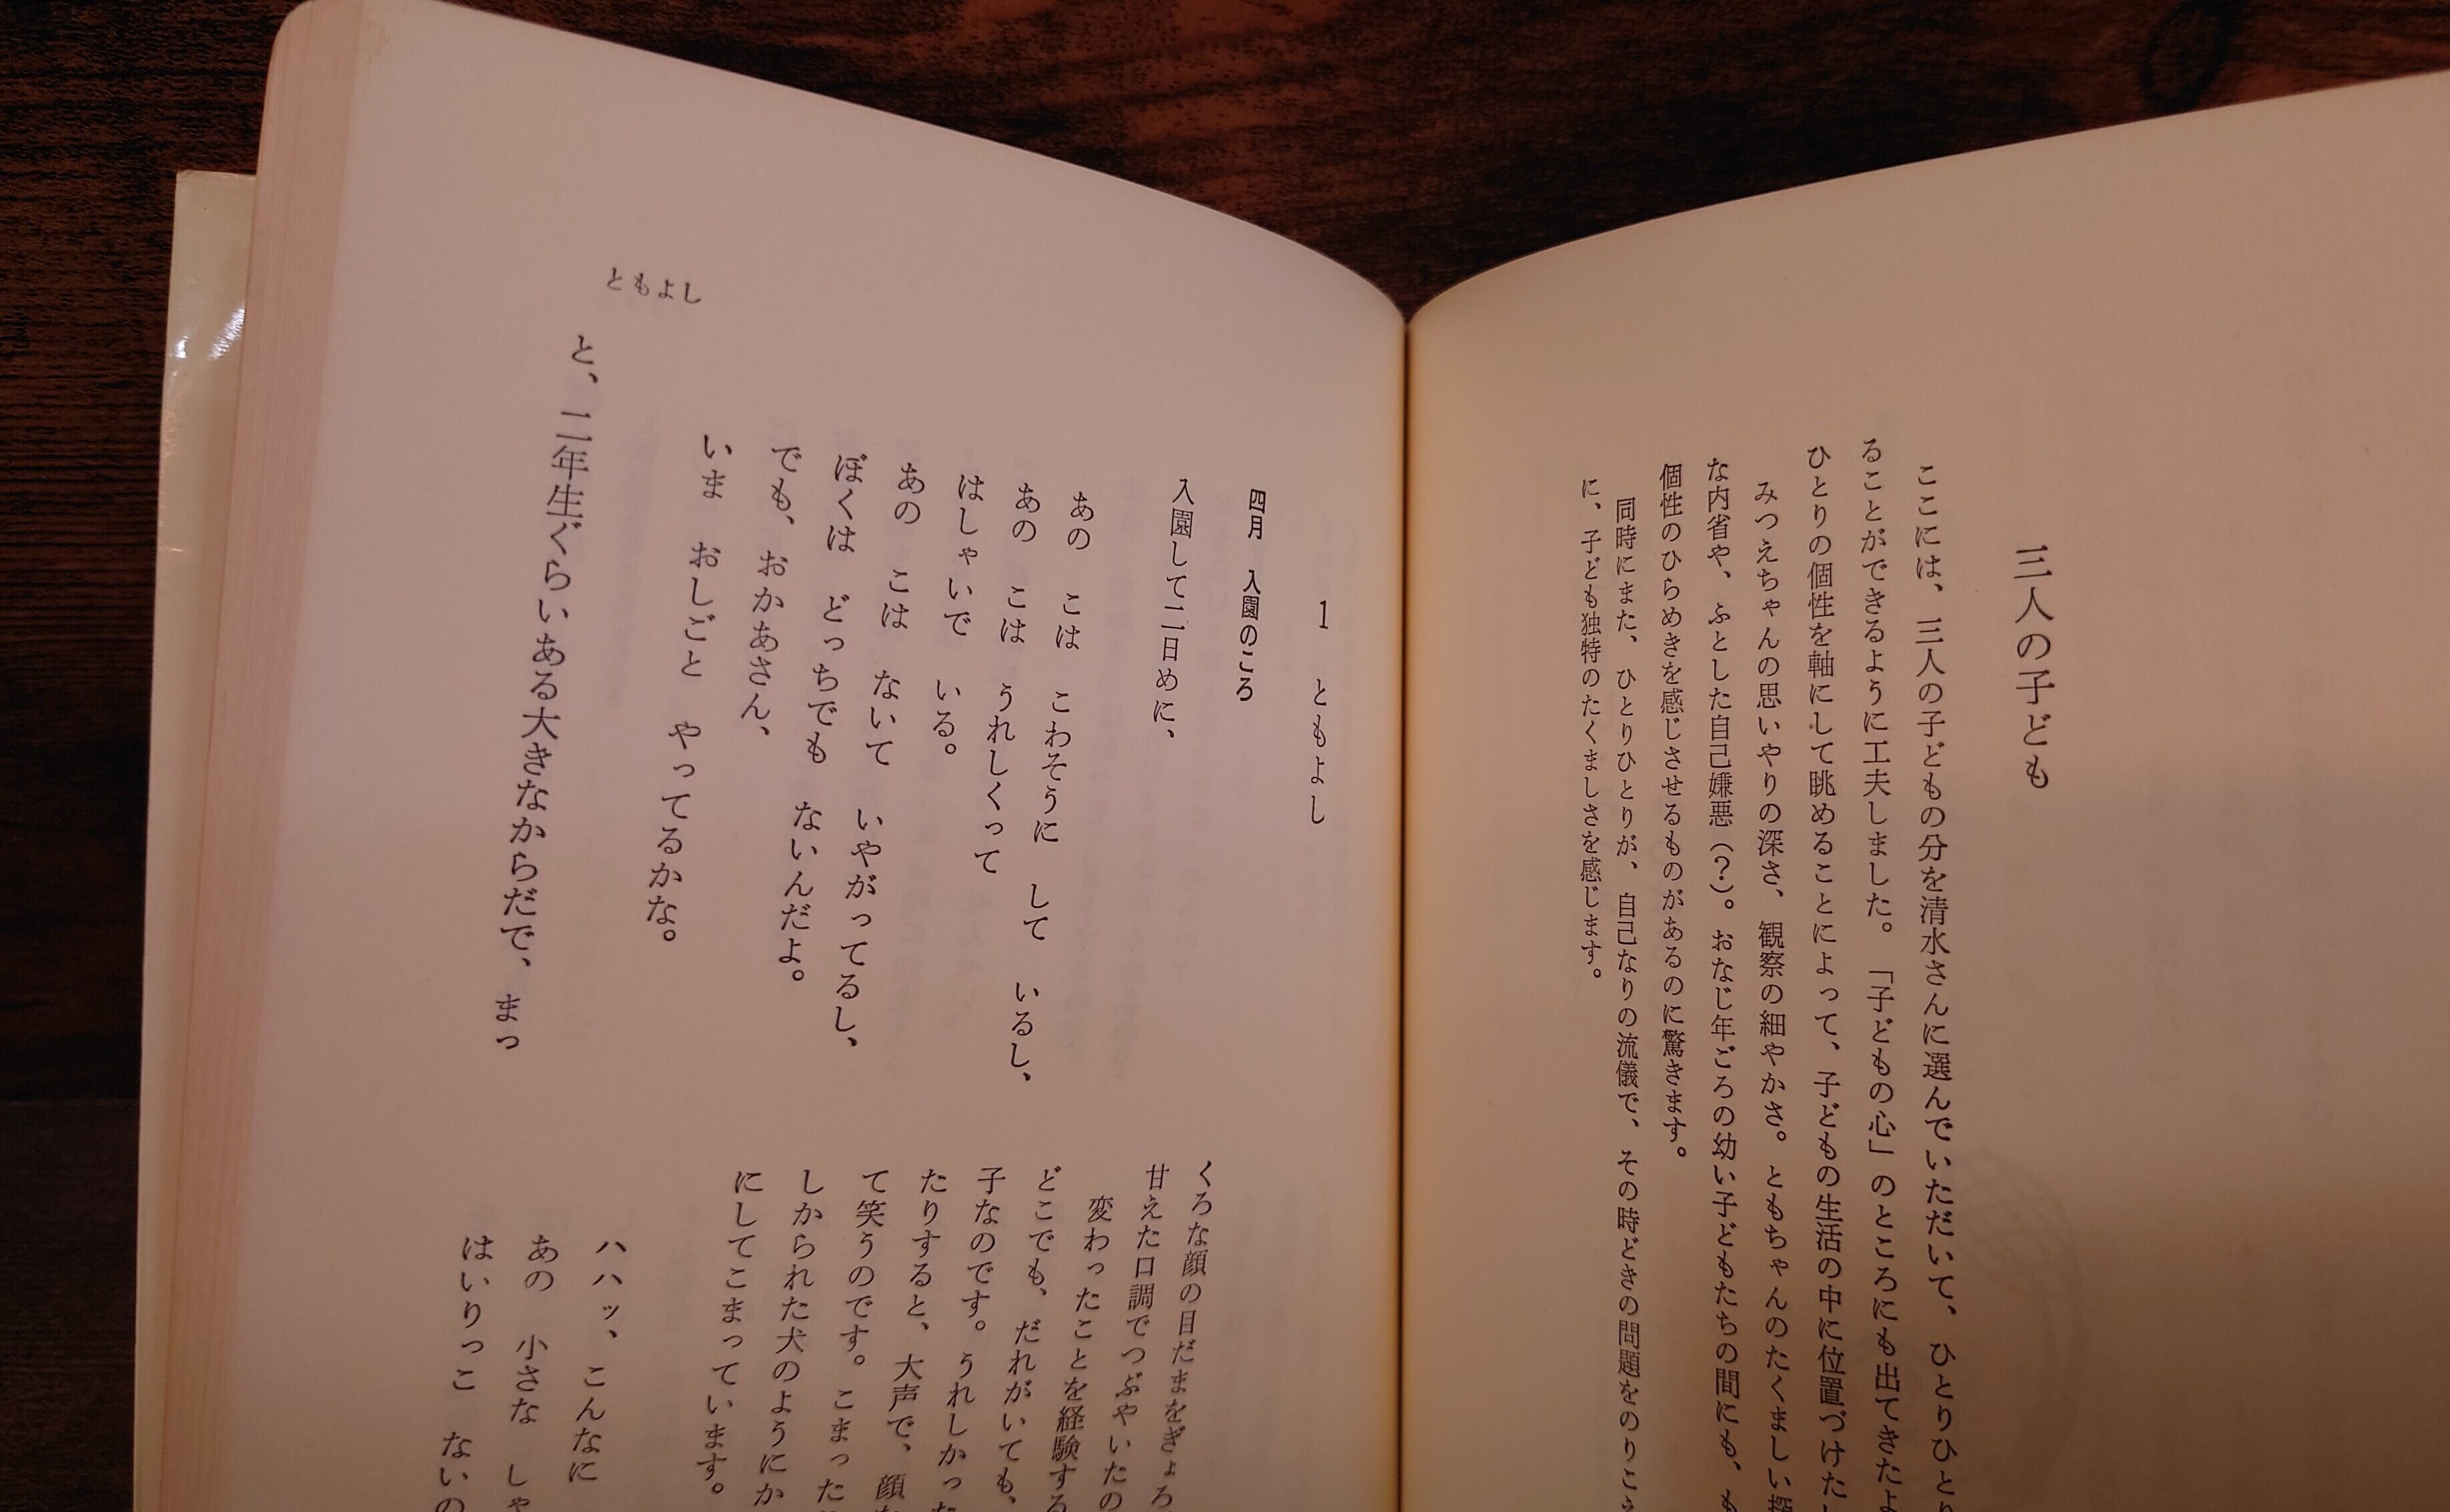 三人の子ども
ここには、三人の子どもの分を清水さんに選んでいただいて、ひとりひと
ることができるように工夫しました。「子どもの心」のところにも出てきたよ
ひとりの個性を軸にして眺めることによって、子どもの生活の中に位置づけた
みつえちゃんの思いやりの深さ、観察の細やかさ。ともちゃんのたくましい
な内省や、ふとした自己嫌悪(?)。おなじ年ごろの幼い子どもたちの間にも、も
個性のひらめきを感じさせるものがあるのに驚きます。
同時にまた、ひとりひとりが、自己なりの流儀で、その時どきの問題をのりこ
に、子ども独特のたくましさを感じます。
1 ともよし
四月 入園のころ
入園して二日めに、
あの こは こわそうに して いるし、
あの こは うれしくって
はしゃいで いる。
あの こは ないて いやがってるし、
ぼくは どっちでも ないんだよ。
でも、おかあさん、
いま おしごと やってるかな。
と、二年生ぐらいある大きなからだで、まっ
くろな顔の目だまをぎょろ
甘えた口調でつぶやいたの
変わったことを経験する
どこでも、だれがいても、
子なのです。うれしかった
たりすると、大声で、顔
て笑うのです。こまった
しかられた犬のようにか
にしてこまっています。
ハハッ、こんなに
あの 小さな しゃ
はいりっこ ないの
ともよし